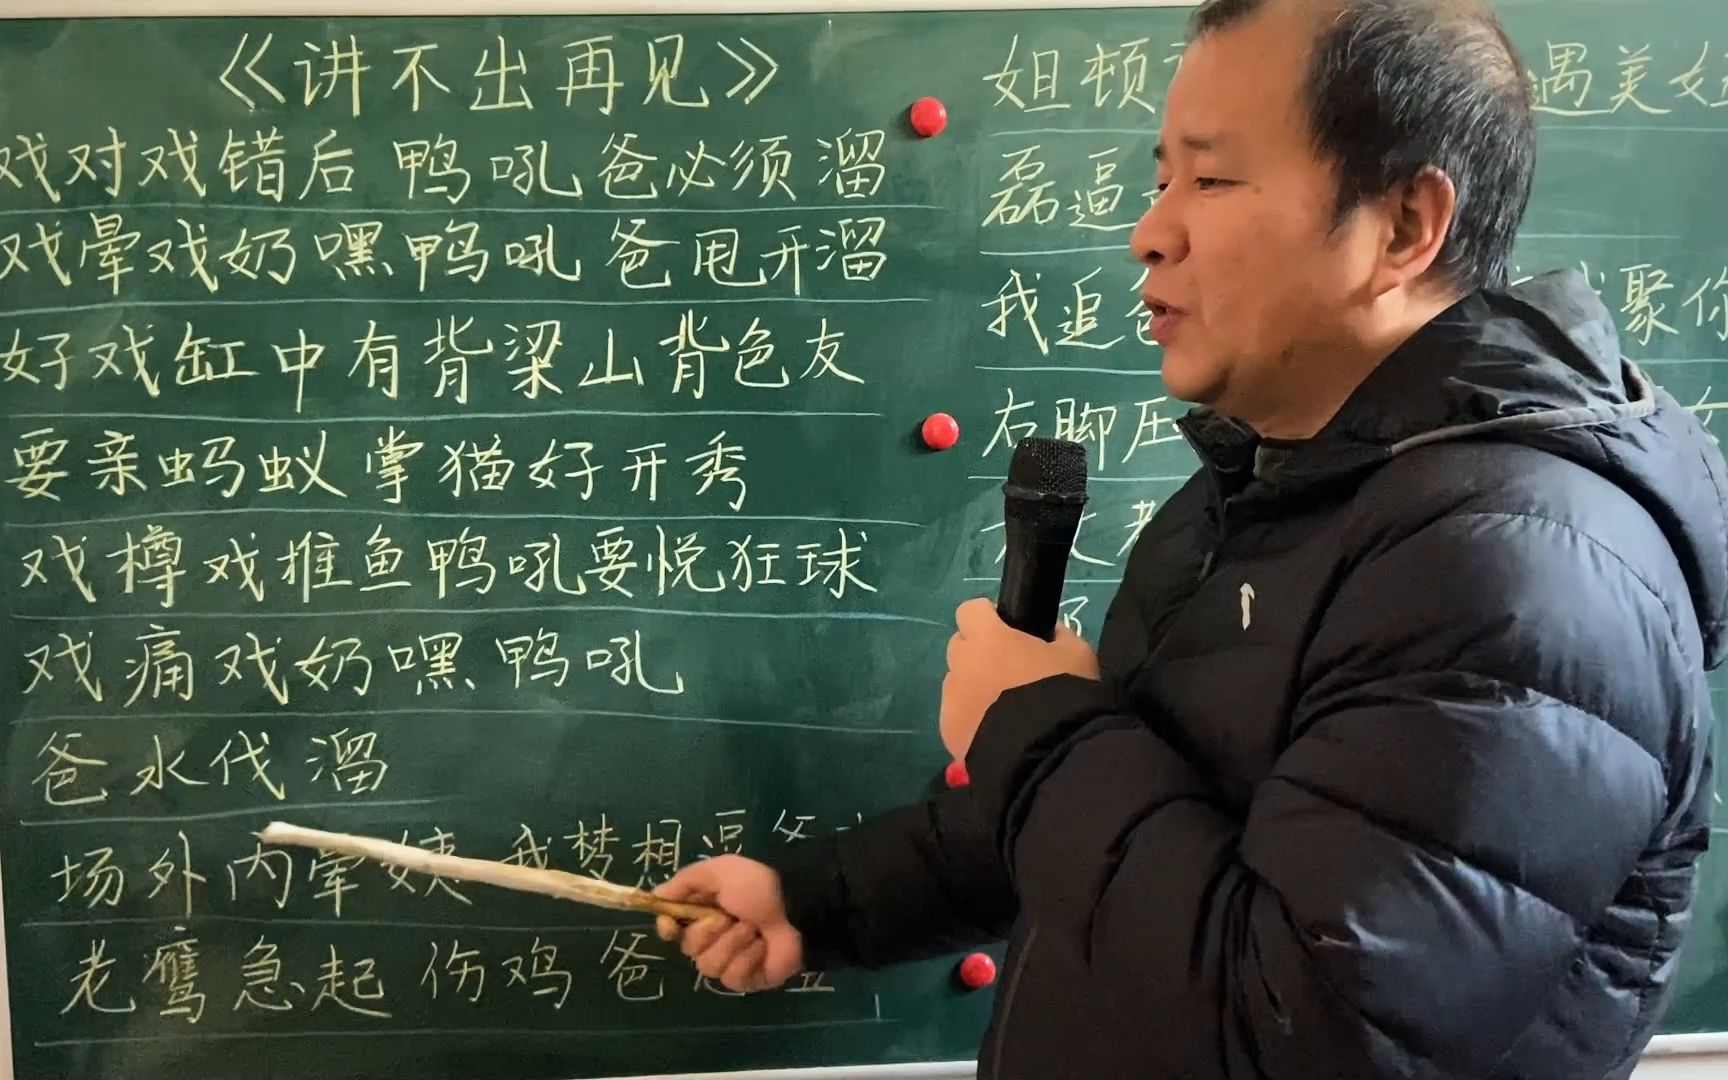 《讲不出再见》
戏对戏错后 鸭吼爸必须溜
戏晕戏奶嘿鸭吼 爸甩开溜
好戏缸中有背梁山背色友
要亲蚂蚁掌猫好开秀
戏樽戏推鱼鸭吼要悦狂球
戏痛戏奶嘿鸭吼
爸水伐溜
场外内晕姨 我梦想逗
老鹰急起伤鸡爸
姐顿 遇美
磊逼
我追 聚你
右脚压